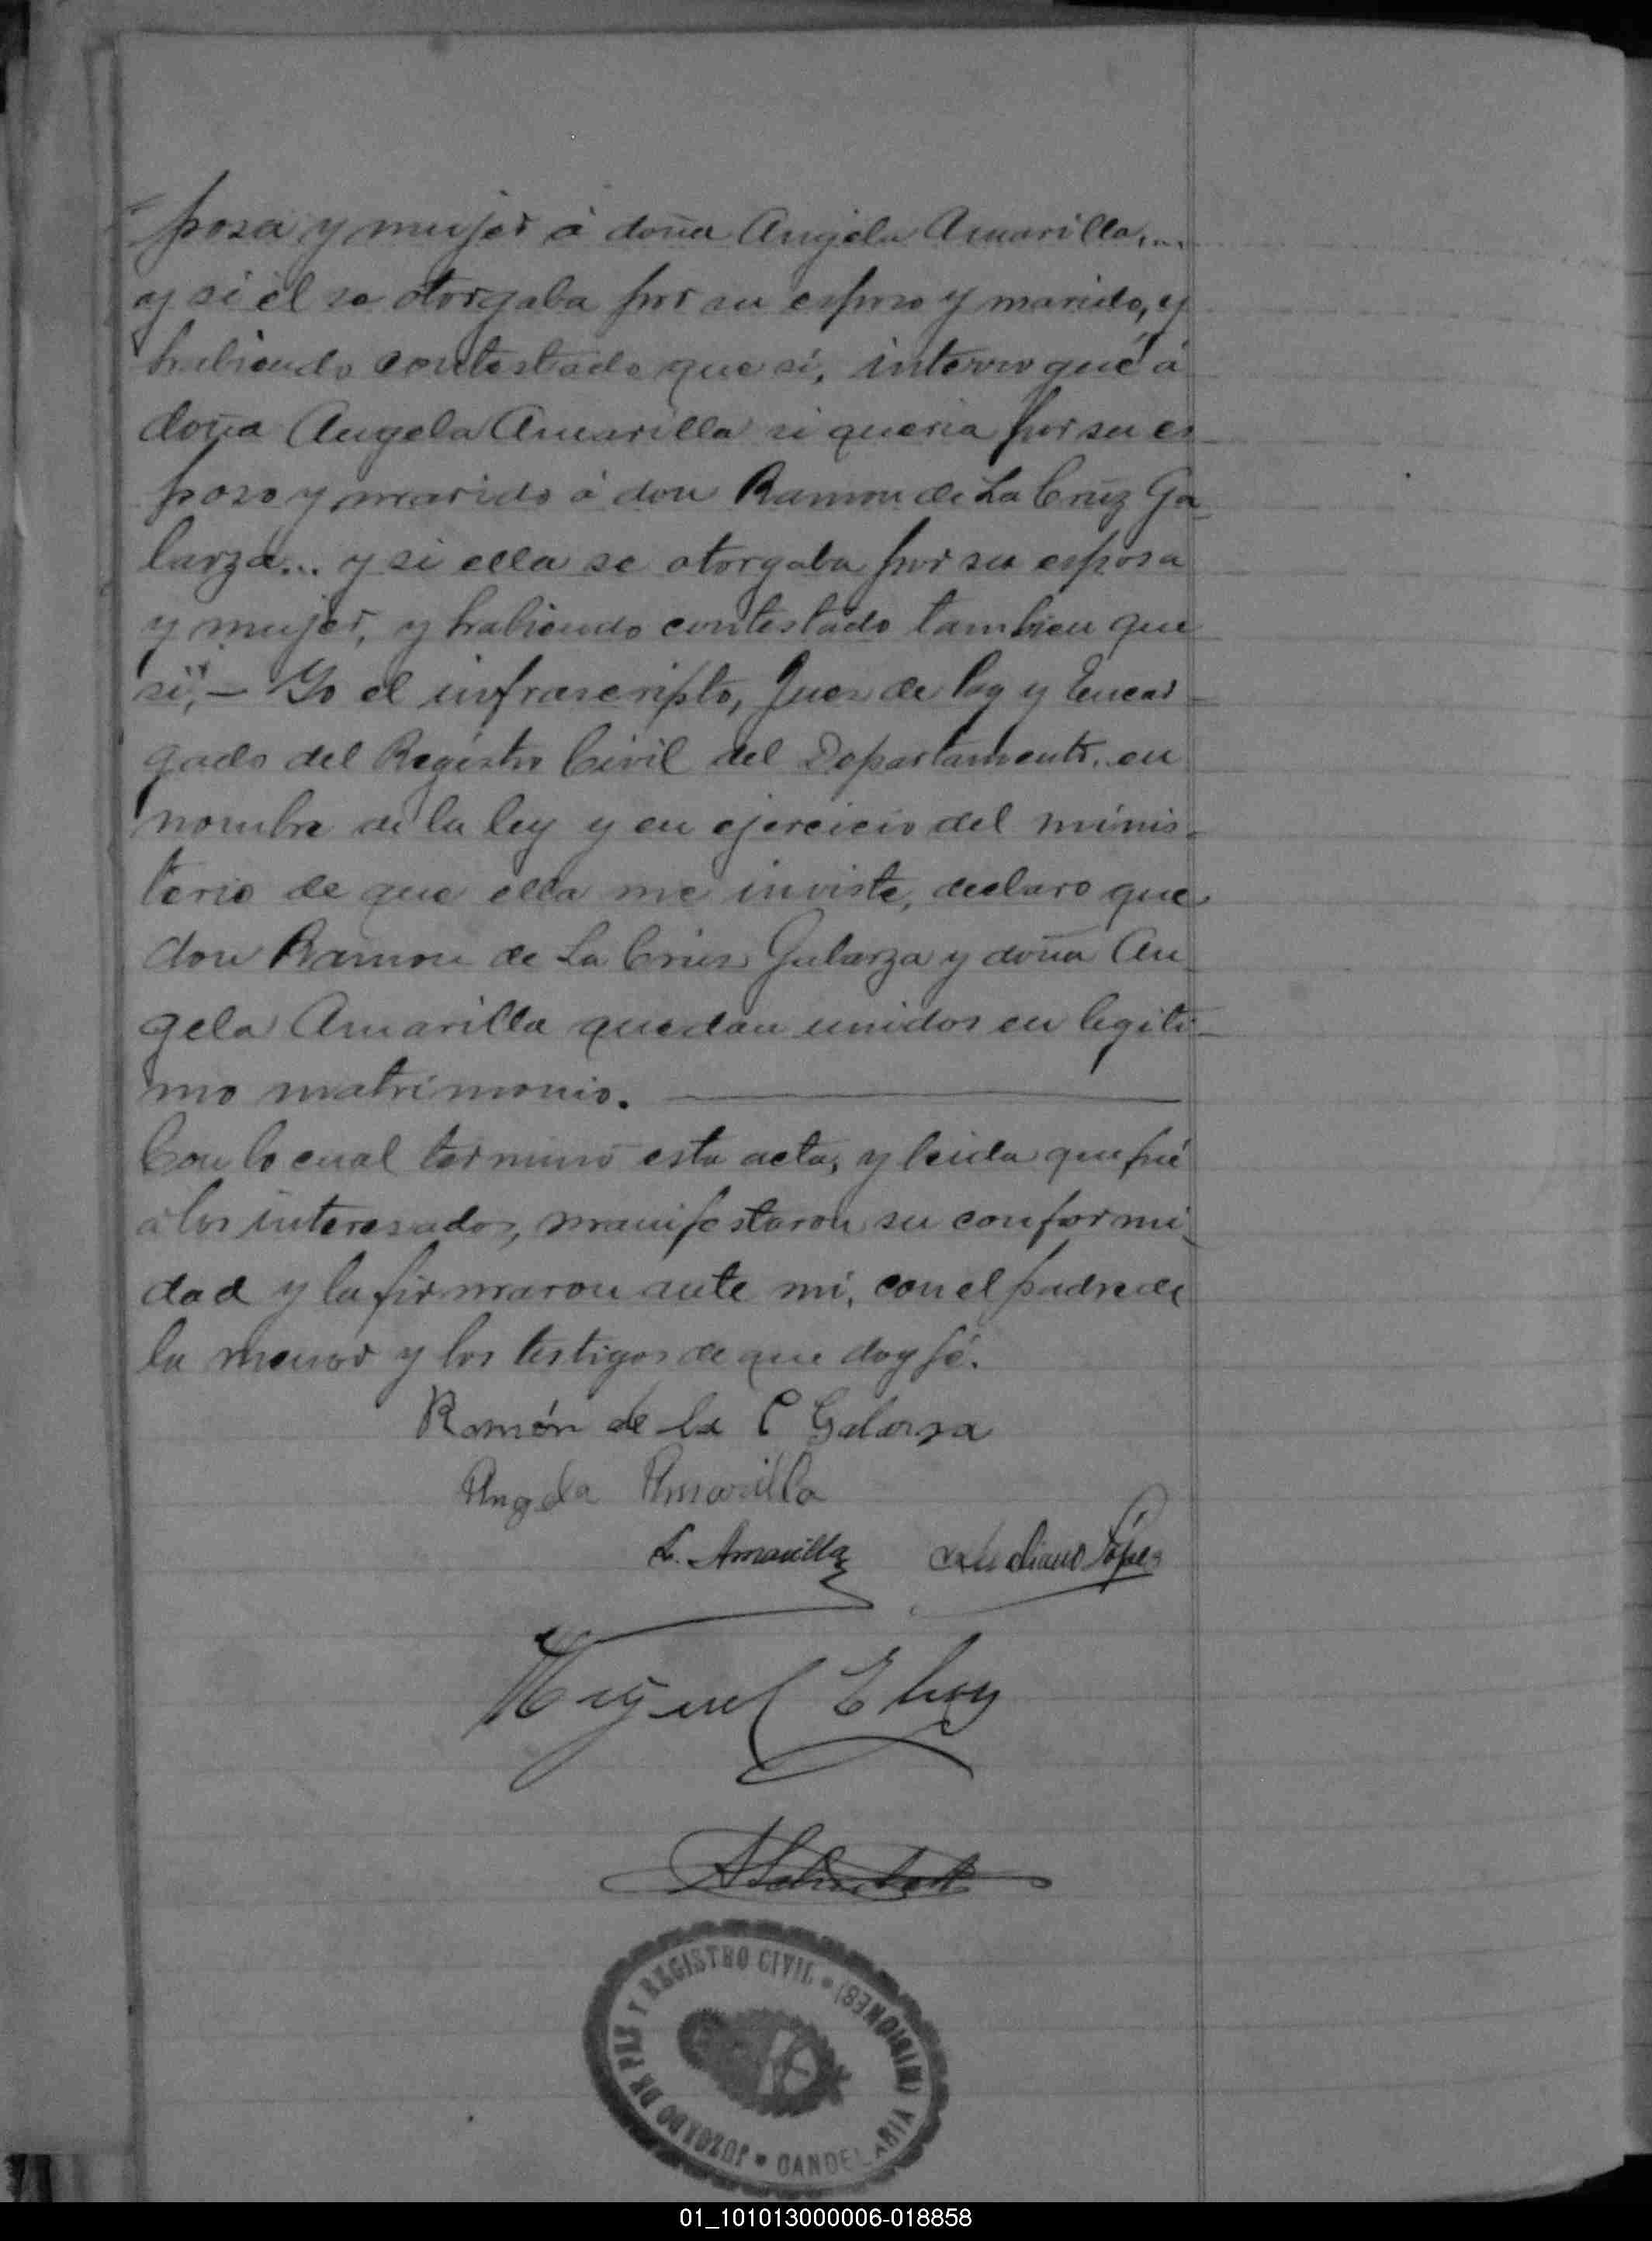 posa y mujer á doña Angela Amarilla...
y si él se otorgaba por su esposo y marido, y
habiendo contestado que si, interrogué á
doña Angela Amarilla si queria por su es
poso y marido á don Ramon de La Cruz Ga
larza... y si ella se otorgaba por su esposa
y mujer, y habiendo contestado tambien que
si, — Yo el infrascripto, Juez de Paz y Encar
gado del Registro Civil del Departamento, en
nombre de la ley y en ejercicio del minis-
terio de que ella me inviste, declaro que
don Ramon de La Cruz Galarza y doña An
gela Amarilla quedan unidos en legiti
mo matrimonio. —
Con lo cual terminó esta acta, y leida que fué
á los interesados, manifestaron su conformi
dad y la firmaron ante mí, con el padre de
la menor y los testigos de que doy fé.
Ramón de la C Galarza
Angela Amarilla
L. Amarilla López
Miguel
JUZGADO DE PAZ Y REGISTRO CIVIL * CANDELARIA (MISIONES)
01_101013000006-018858